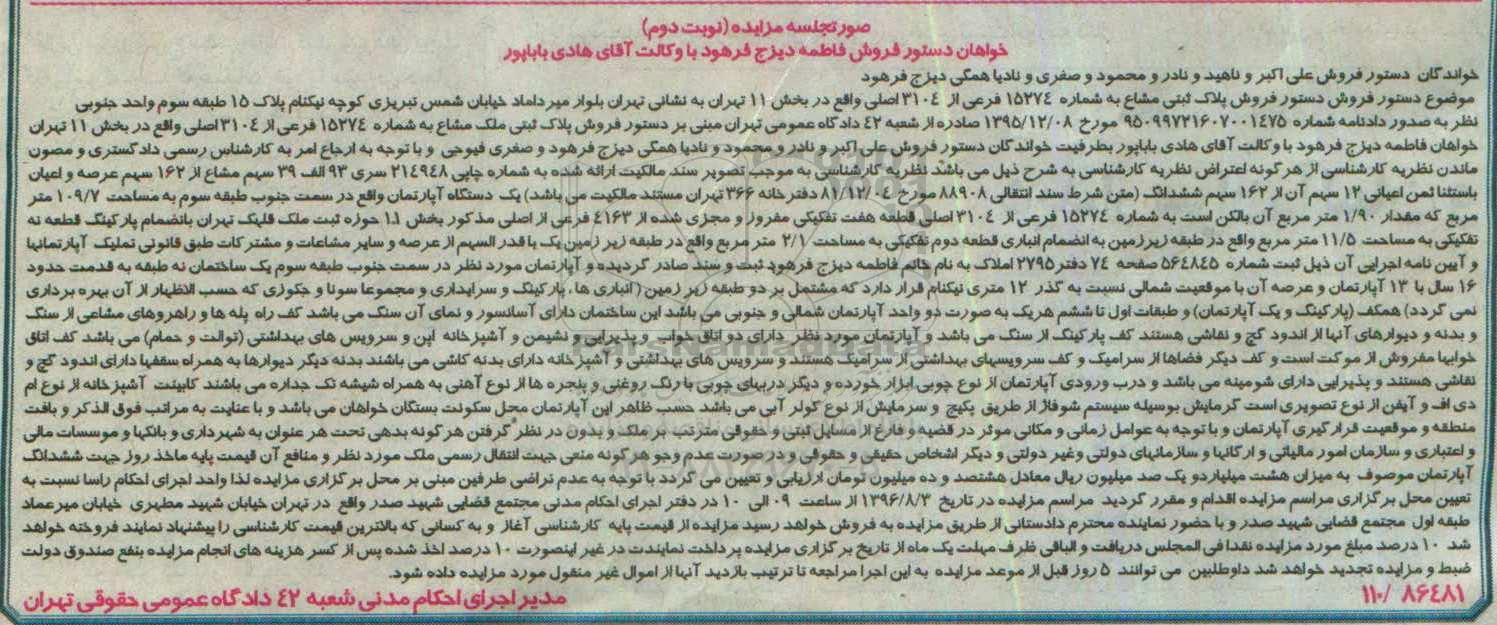 صورتجلسه مزایده (نوبت دوم)
خواهان دستور فروش فاطمه دیزج فرهود با وکالت آقای هادی باباپور
خواندگان دستور فروش علی اکبر و ناهید و نادر و محمود و صغری و نادیا همگی دیزج فرهود
موضوع دستور فروش دستور فروش پلاک ثبتی مشاع به شماره ۱۵۲۷۴ فرعی از ۳۱۰۴ اصلی واقع در بخش ۱۱ تهران به نشانی تهران بلوار میرداماد خیابان شمس تبریزی کوچه نیکنام پلاک ۱۵ طبقه سوم واحد جنوبی
نظر به صدور دادنامه شماره ۹۵۰۹۹۷۲۱۶۰۷۰۰۱۴۷۵ مورخ ۱۳۹۵/۱۲/۰۸ صادره از شعبه ۴۲ دادگاه عمومی تهران مبنی بر دستور فروش پلاک ثبتی ملک مشاع به شماره ۱۵۲۷۴ فرعی از ۳۱۰۴ اصلی واقع در بخش ۱۱ تهران
خواهان فاطمه دیزج فرهود با وکالت آقای هادی باباپور بطرفیت خواندگان دستور فروش علی اکبر و نادر و محمود و نادیا همگی دیزج فرهود و صغری فیوجی و با توجه به ارجاع امر به کارشناس رسمی دادگستری و مصون
ماندن نظریه کارشناسی از هرگونه اعتراض نظریه کارشناسی به شرح ذیل می باشد نظریه کارشناسی به موجب تصویر سند مالکیت ارائه شده به شماره چاپی ۲۱۴۹۴۸ سری ۹۳ الف ۳۹ سهم مشاع از ۱۶۲ سهم عرصه و اعیان
باستثنا ثمن اعیانی ۱۲ سهم آن از ۱۶۲ سهم ششدانگ (متن شرط سند انتقالی ۸۸۹۰۸ مورخ ۸۱/۱۲/۰۴ دفترخانه ۳۶۶ تهران مستند مالکیت می باشد) یک دستگاه آپارتمان واقع در سمت جنوب طبقه سوم به مساحت ۱۰۹/۷ متر
مربع که مقدار ۱/۹۰ متر مربع آن بالکن است به شماره ۱۵۲۷۴ فرعی از ۳۱۰۴ اصلی قطعه هفت تفکیکی مفروز و مجزی شده از ۴۱۶۳ فرعی از اصلی مذکور بخش ۱۱ حوزه ثبت ملک قلهک تهران بانضمام پارکینگ قطعه نه
تفکیکی به مساحت ۱۱/۵ متر مربع واقع در طبقه زیرزمین به انضمام انباری قطعه دوم تفکیکی به مساحت ۲/۱ متر مربع واقع در طبقه زیر زمین یک با قدر السهم از عرصه و سایر مشاعات و مشترکات طبق قانونی تملیک آپارتمانها
و آیین نامه اجرایی آن ذیل ثبت شماره ۵۶۴۸۴۵ صفحه ۷۴ دفتر ۲۷۹۵ املاک به نام خانم فاطمه دیزج فرهود ثبت و سند صادر گردیده و آپارتمان مورد نظر در سمت جنوب طبقه سوم یک ساختمان نه طبقه به قدمت حدود
۱۶ سال با ۱۳ آپارتمان و عرصه آن با موقعیت شمالی نسبت به گذر ۱۲ متری نیکنام قرار دارد که مشتمل بر دو طبقه زیر زمین (انباری ها، پارکینگ و سرایداری و مجموعا سونا و جکوزی که حسب الاظهار از آن بهره برداری
نمی گردد) همکف (پارکینگ و یک آپارتمان) و طبقات اول تا ششم هریک به صورت دو واحد آپارتمان شمالی و جنوبی می باشد این ساختمان دارای آسانسور و نمای آن سنگ می باشد کف راه پله ها و راهروهای مشاعی از سنگ
و بدنه و دیوارهای آنها از اندود گچ و نقاشی هستند کف پارکینگ از سنگ می باشد و آپارتمان مورد نظر دارای دو اتاق خواب و پذیرایی و نشیمن و آشپزخانه اپن و سرویس های بهداشتی (توالت و حمام) می باشد کف اتاق
خوابها مفروش از موکت است و کف دیگر فضاها از سرامیک و کف سرویسهای بهداشتی از سرامیک هستند و سرویس های بهداشتی و آشپزخانه دارای بدنه کاشی می باشند بدنه دیگر دیوارها به همراه سقفها دارای اندود گچ و
نقاشی هستند و پذیرایی دارای شومینه می باشد و درب ورودی آپارتمان از نوع چوبی ابزار خورده و دیگر دربهای چوبی با رنگ روغنی و پنجره ها از نوع آهنی به همراه شیشه تک جداره می باشند کابینت آشپزخانه از نوع ام
دی اف و آیفن از نوع تصویری است گرمایش بوسیله سیستم شوفاژ از طریق پکیج و سرمایش از نوع کولر آبی می باشد حسب ظاهر این آپارتمان محل سکونت بستگان خواهان می باشد و با عنایت به مراتب فوق الذکر و بافت
منطقه و موقعیت قرارگیری آپارتمان و با توجه به عوامل زمانی و مکانی موثر در قضیه و فارغ از مسایل ثبتی و حقوقی مترتب بر ملک و بدون در نظر گرفتن هرگونه بدهی تحت هر عنوان به شهرداری و بانکها و موسسات مالی
و اعتباری و سازمان امور مالیاتی و ارگانها و سازمانهای دولتی وغیر دولتی و دیگر اشخاص حقیقی و حقوقی و درصورت عدم وجو هرگونه منعی جهت انتقال رسمی ملک مورد نظر و منافع آن قیمت پایه ماخذ روز جهت ششدانگ
آپارتمان موصوف به میزان هشت میلیاردو یک صد میلیون ریال معادل هشتصد و ده میلیون تومان ارزیابی و تعیین می گردد با توجه به عدم تراضی طرفین مبنی بر محل برگزاری مزایده لذا واحد اجرای احکام راسا نسبت به
تعیین محل برگزاری مراسم مزایده اقدام و مقرر گردید مراسم مزایده در تاریخ ۱۳۹۶/۸/۳ از ساعت ۰۹ الی ۱۰ در دفتر اجرای احکام مدنی مجتمع قضایی شهید صدر واقع در تهران خیابان شهید مطهری خیابان میرعماد
طبقه اول مجتمع قضایی شهید صدر و با حضور نماینده محترم دادستانی از طریق مزایده به فروش خواهد رسید مزایده از قیمت پایه کارشناسی آغاز و به کسانی که بالاترین قیمت کارشناسی را پیشنهاد نمایند فروخته خواهد
شد ۱۰ درصد مبلغ مورد مزایده نقدا فی المجلس دریافت و الباقی ظرف مهلت یک ماه از تاریخ برگزاری مزایده پرداخت نمایندت در غیر اینصورت ۱۰ درصد اخذ شده پس از کسر هزینه های انجام مزایده بنفع صندوق دولت
ضبط و مزایده تجدید خواهد شد داوطلبین می توانند ۵ روز قبل از موعد مزایده به این اجرا مراجعه تا ترتیب بازدید آنها از اموال غیر منقول مورد مزایده داده شود.
۱۱۰/ ۸۶۴۸۱
مدیر اجرای احکام مدنی شعبه ۴۲ دادگاه عمومی حقوقی تهران